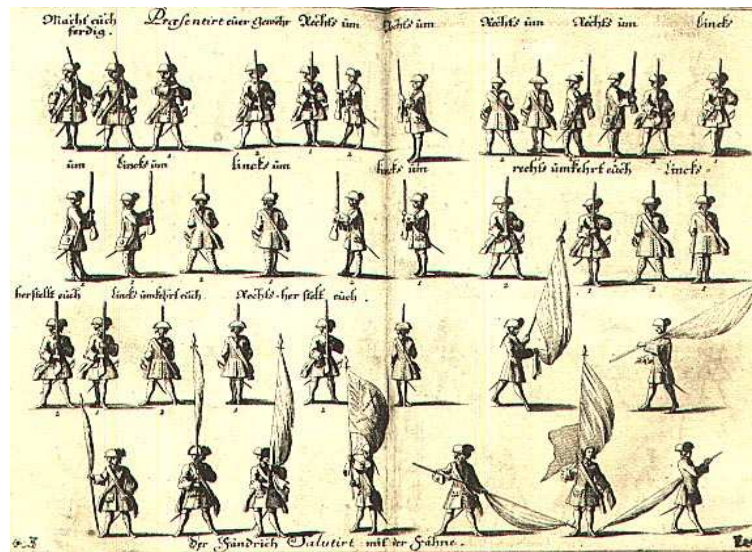 Macht euch Præsentirt euer Gewehr Rechts üm Rechts üm Rechts üm Rechts üm Lincks
ferdig.
üm Lincks üm Lincks üm Lincks üm rechts ümkehrt euch Lincks-
herstellt euch Lincks ümkehrt euch Rechts-her stelt euch.
Der Fändrich Salutirt mit der Fahne.